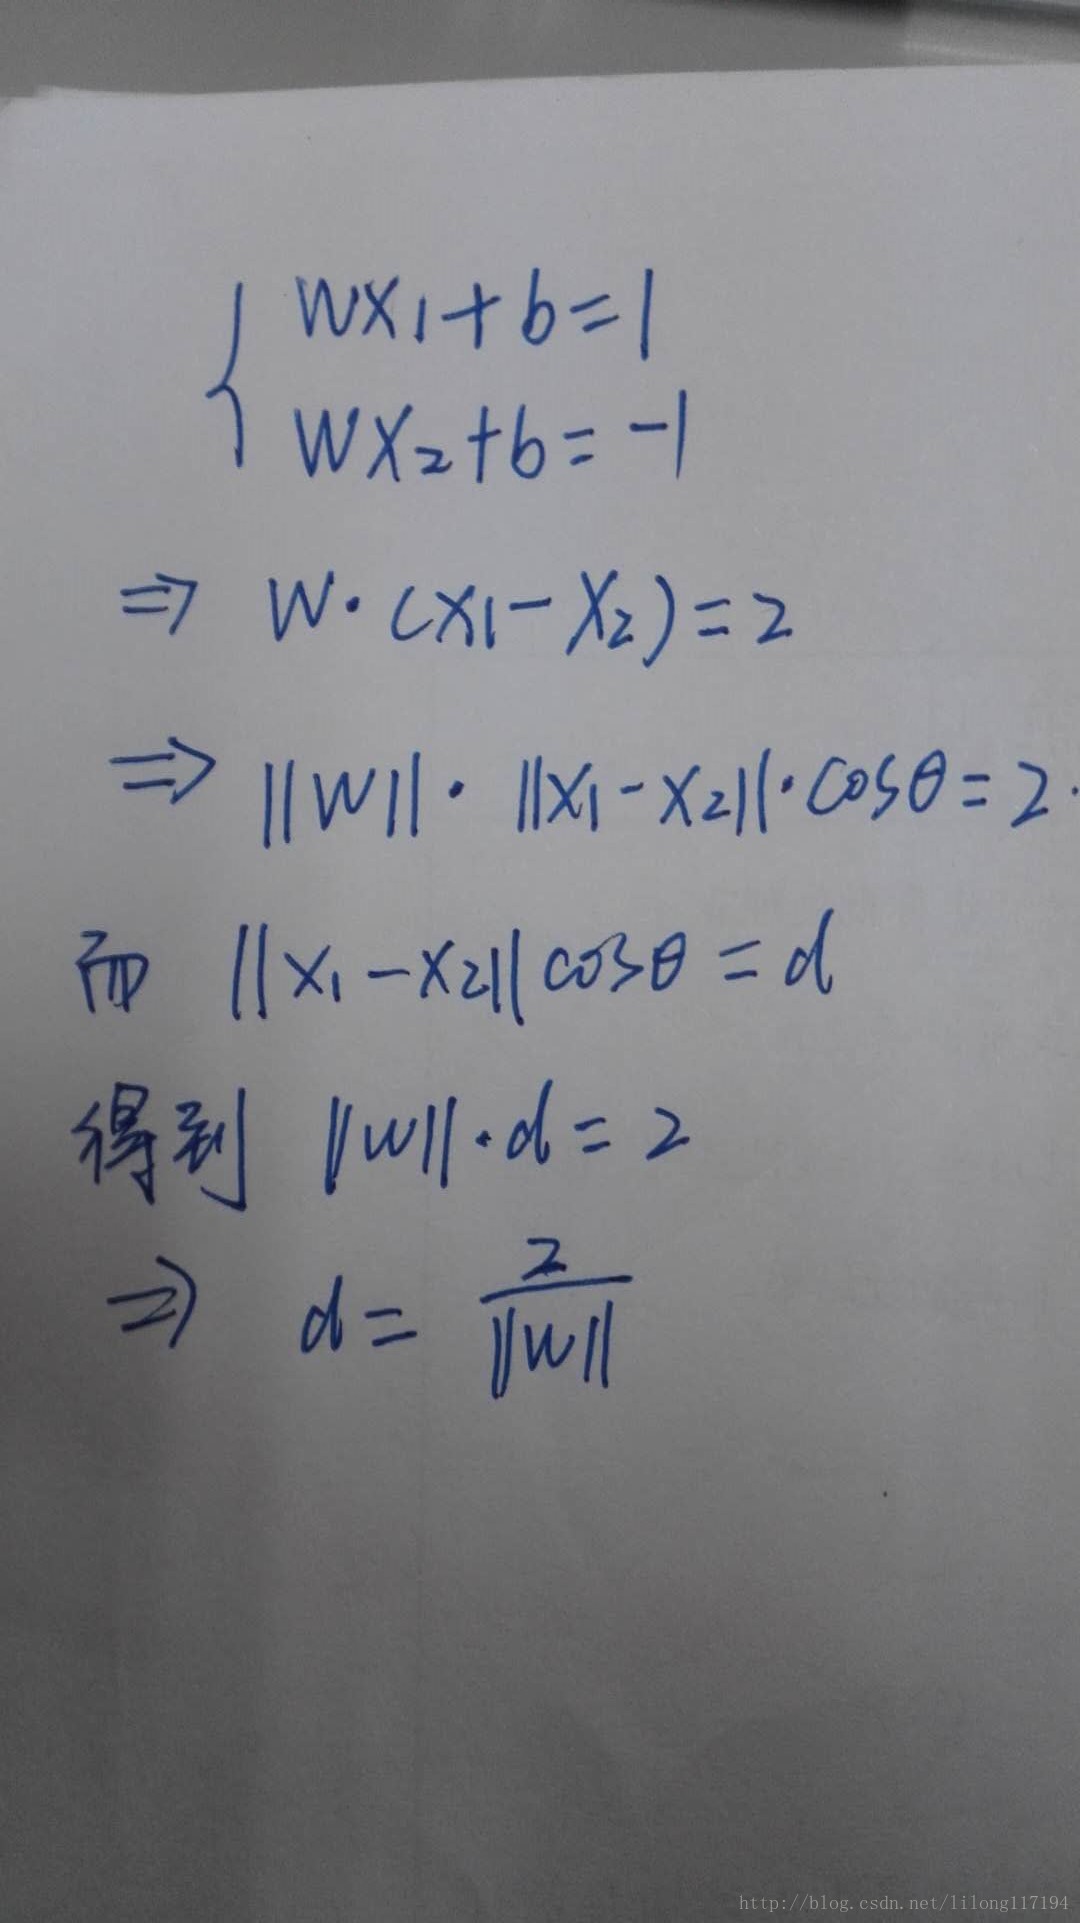 { wx₁+b=1
wx₂+b=-1
⇒ w·(x₁-x₂)=2
⇒ ||w||·||x₁-x₂||·cosθ=2.
而 ||x₁-x₂||cosθ=d
得到 ||w||·d=2
⇒ d= 2/||w||
http://blog.csdn.net/lilong117194